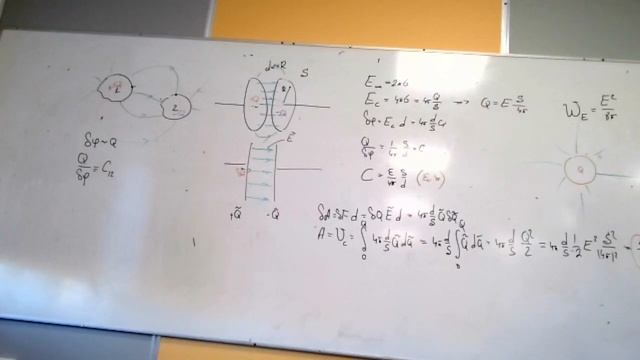 2
δφ ~ Q
Q/δφ = C₁₂
d << R
S
E⃗
+Q̃ -Q
E_c = 4πσ = 4π Q/S → Q = E S/4π
δφ = E_c d = 4π d/S Q
Q/δφ = 1/4π S/d = C
C = ε/4π S/d
W_E = E²/8π
Q
A = U_c = ∫₀^Q 4π d/S Q̃ dQ̃ = 4π d/S ∫₀^Q Q̃ dQ̃ = 4π d/S Q²/2 = 4π d/S 1/2 E² S²/(4π)² =